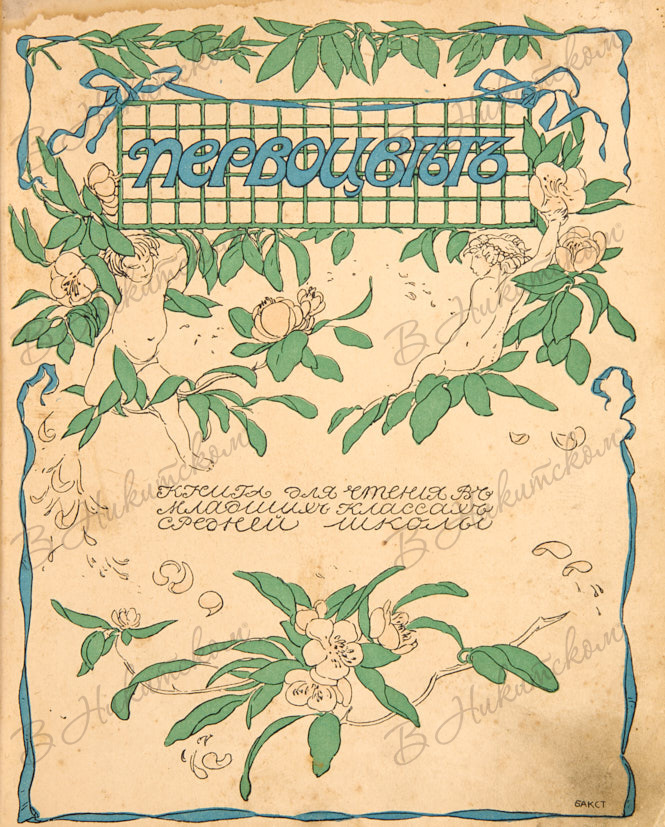 Первоцвѣтъ
Книга для чтенія въ
младшихъ классахъ
средней школы
БАКСТ
В Никитском
В Никитском
В Никитском
В Никитском
В Никитском
В Никитском
В Никитском
В Никитском